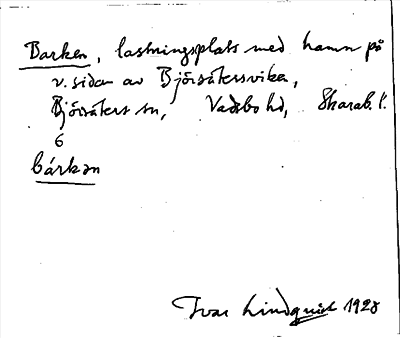 Barken, lastningsplats med hamn på
v. sidan av Björsätersviken,
Björsäters sn, Vadsbo hd, Skarab. l.
6
bárkan
Ivar Lindquist 1928